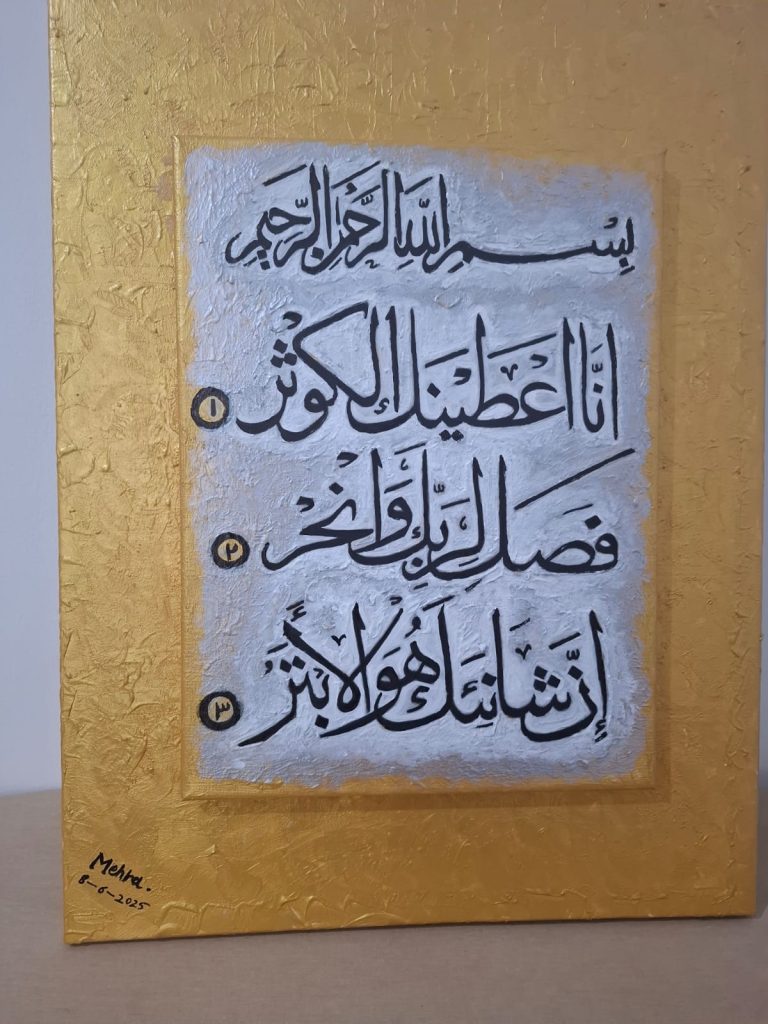 بِسْمِ اللَّهِ الرَّحْمَٰنِ الرَّحِيمِ
انَّا اعْطَيْنَكَ الكَوْثَرْ ١
فَصَلِ لِرَبِّكَ وَانْحَرْ ٢
إِنَّ شَانِئَكَ هُوَ الأَبْتَرُ ٣
Mehra.
8-6-2025